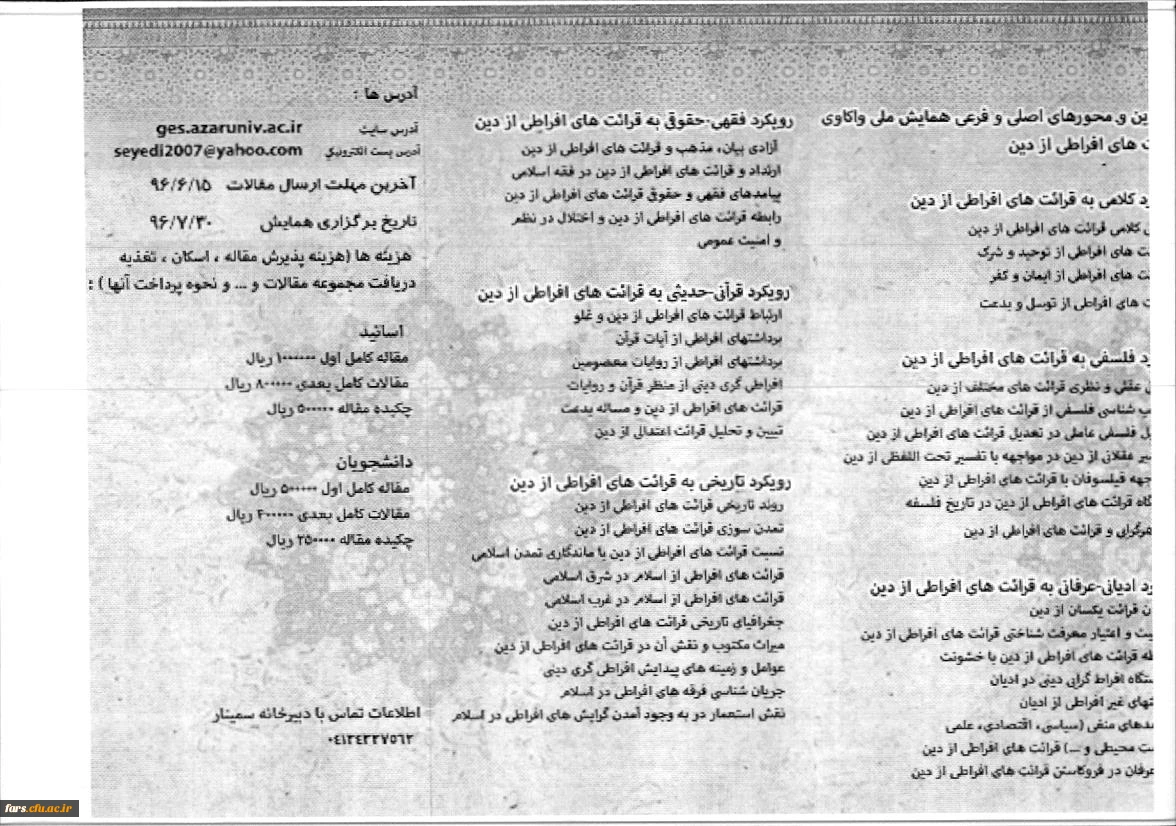 ین و محورهای اصلی و فرعی همایش ملی واکاوی
ت های افراطی از دین
د کلامی به قرائت های افراطی از دین
ی کلامی قرائت های افراطی از دین
ت های افراطی از توحید و شرک
ت های افراطی از ایمان و کفر
ت های افراطی از توسل و بدعت
د فلسفی به قرائت های افراطی از دین
ی عقلی و نظری قرائت های مختلف از دین
ب شناسی فلسفی از قرائت های افراطی از دین
ل فلسفی عاملی در تعدیل قرائت های افراطی از دین
یر عقلانی از دین در مواجهه با تفسیر تحت اللفظی از دین
جهه فیلسوفان با قرائت های افراطی از دین
گاه قرائت های افراطی از دین در تاریخ فلسفه
هرگرایی و قرائت های افراطی از دین
د ادیانی-عرفانی به قرائت های افراطی از دین
ن قرائت یکسان از دین
یت و اعتبار معرفت شناختی قرائت های افراطی از دین
طه قرائت های افراطی از دین با خشونت
ستگاه افراط گرایی دینی در ادیان
تهای غیر افراطی از ادیان
مدهای منفی (سیاسی، اقتصادی، علمی
ست محیطی و ...) قرائت های افراطی از دین
عرفان در فروکاستن قرائت های افراطی از دین
رویکرد فقهی-حقوقی به قرائت های افراطی از دین
آزادی بیان، مذهب و قرائت های افراطی از دین
ارتداد و قرائت های افراطی از دین در فقه اسلامی
پیامدهای فقهی و حقوقی قرائت های افراطی از دین
رابطه قرائت های افراطی از دین و اختلال در نظم
و امنیت عمومی
رویکرد قرآنی-حدیثی به قرائت های افراطی از دین
ارتباط قرائت های افراطی از دین و غلو
برداشتهای افراطی از آیات قرآن
برداشتهای افراطی از روایات معصومین
افراطی گری دینی از منظر قرآن و روایات
قرائت های افراطی از دین و مساله بدعت
تبیین و تحلیل قرائت اعتدالی از دین
رویکرد تاریخی به قرائت های افراطی از دین
روند تاریخی قرائت های افراطی از دین
تمدن سوزی قرائت های افراطی از دین
نسبت قرائت های افراطی از دین با ماندگاری تمدن اسلامی
قرائت های افراطی از اسلام در شرق اسلامی
قرائت های افراطی از اسلام در غرب اسلامی
جغرافیای تاریخی قرائت های افراطی از دین
میراث مکتوب و نقش آن در قرائت های افراطی از دین
عوامل و زمینه های پیدایش افراطی گری دینی
جریان شناسی فرقه های افراطی در اسلام
نقش استعمار در به وجود آمدن گرایش های افراطی در اسلام
آدرس ها :
آدرس سایت ges.azaruniv.ac.ir
آدرس پست الکترونیکی seyedi2007@yahoo.com
آخرین مهلت ارسال مقالات ۹۶/۶/۱۵
تاریخ برگزاری همایش ۹۶/۷/۳۰
هزینه ها (هزینه پذیرش مقاله ، اسکان ، تغذیه
دریافت مجموعه مقالات و ... و نحوه پرداخت آنها ) :
اساتید
مقاله کامل اول ۱۰۰۰۰۰۰ ریال
مقالات کامل بعدی ۸۰۰۰۰۰ ریال
چکیده مقاله ۵۰۰۰۰۰ ریال
دانشجویان
مقاله کامل اول ۵۰۰۰۰۰ ریال
مقالات کامل بعدی ۴۰۰۰۰۰ ریال
چکیده مقاله ۲۵۰۰۰۰ ریال
اطلاعات تماس با دبیرخانه سمینار
۰۴۱۳۴۳۲۷۵۶۲
fars.cfu.ac.ir